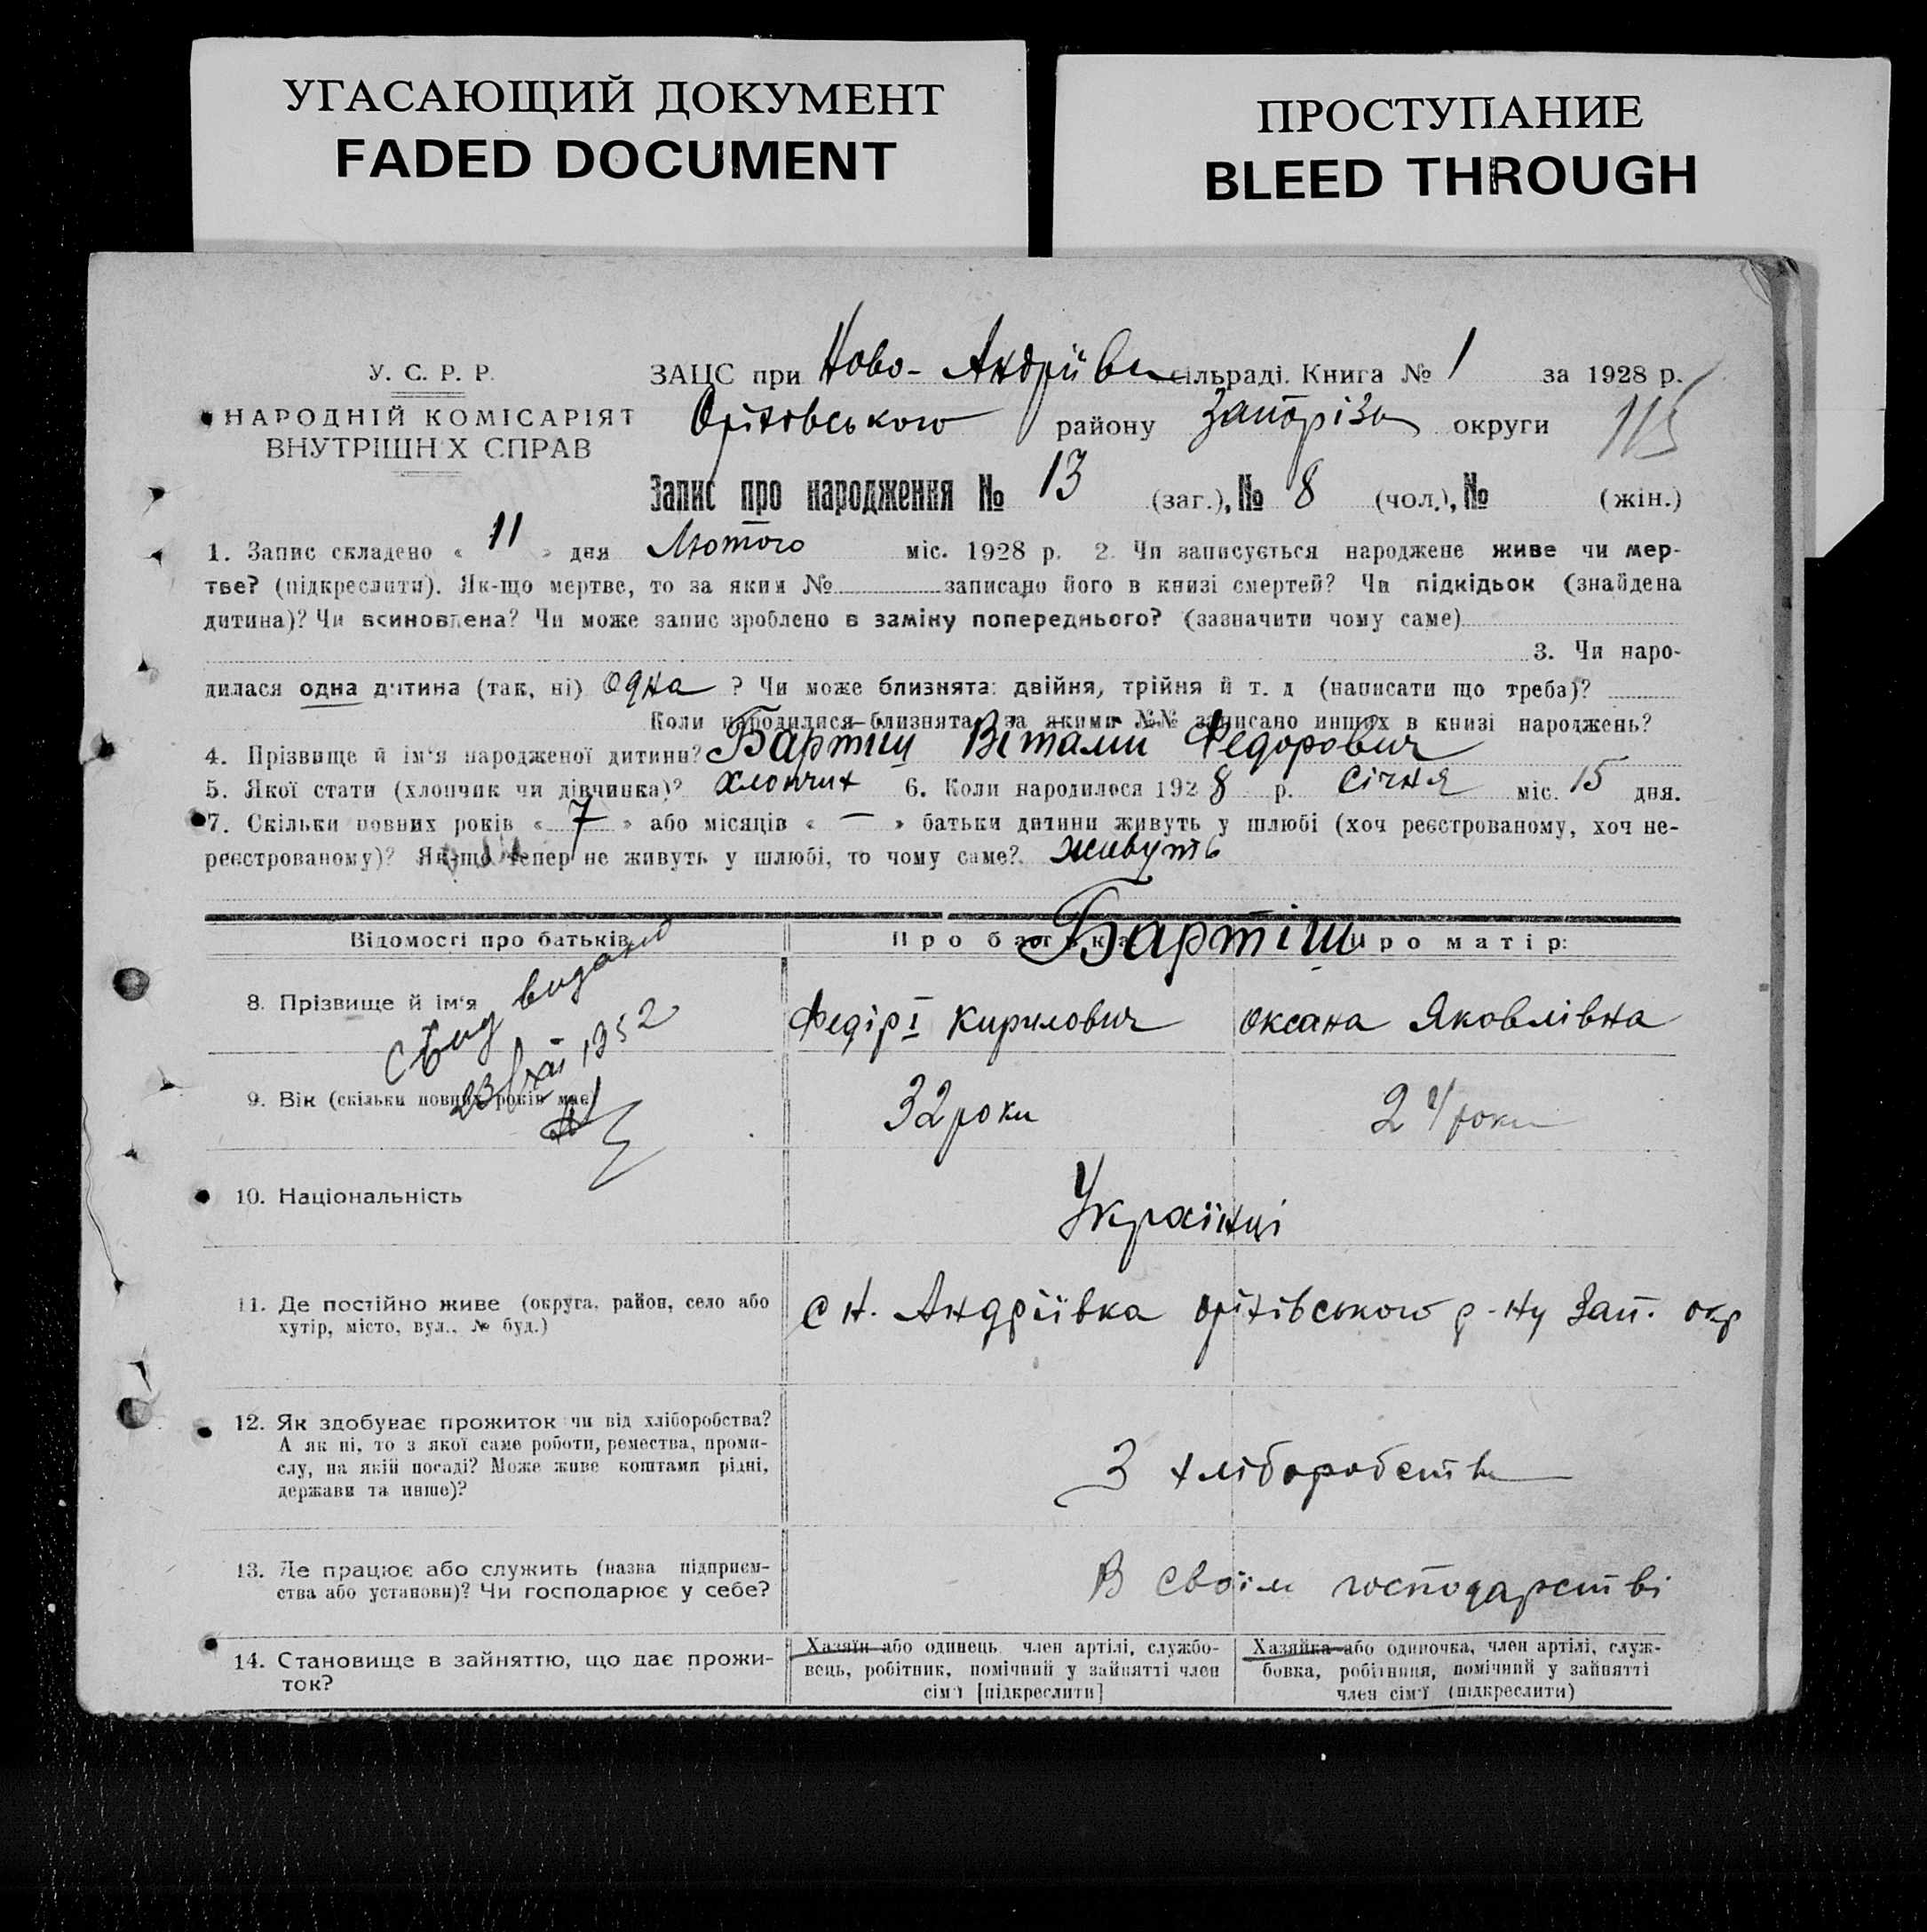 УГАСАЮЩИЙ ДОКУМЕНТ
FADED DOCUMENT
ПРОСТУПАНИЕ
BLEED THROUGH
У. С. Р. Р.
НАРОДНІЙ КОМІСАРІЯТ
ВНУТРІШН Х СПРАВ
ЗАЦС при Ново-Андріївськ сільраді. Книга № 1 за 1928 р.
Оріхівського району Запоріз округи 115
Запис про народження № 13 (заг.), № 8 (чол.), № (жін.)
1. Запис складено « 11 » дня Лютого міс. 1928 р. 2. Чи записується народжене живе чи мер-
тве? (підкреслити). Як-що мертве, то за яким № записано його в книзі смертей? Чи підкідьок (знайдена
дитина)? Чи всиновлена? Чи може запис зроблено в заміну попереднього? (зазначити чому саме)
3. Чи наро-
дилася одна дитина (так, ні) одна ? Чи може близнята: двійня, трійня й т. д (написати що треба)?
Коли народилися близнята, за якими №№ записано инших в книзі народжень?
4. Прізвище й ім'я народженої дитини? Бартіш Віталій Федорович
5. Якої статі (хлопчик чи дівчинка)? хлопчик 6. Коли народилося 1928 р. Січня міс. 15 дня.
7. Скільки повних років « 7 » або місяців « — » батьки дитини живуть у шлюбі (хоч реєстрованому, хоч не-
реєстрованому)? Як-що тепер не живуть у шлюбі, то чому саме? живуть
Відомості про батьків Про батька Бартіш Про матір:
8. Прізвище й ім'я Федір Кирилович Оксана Яковлівна
видано
23 1952
9. Вік (скільки повних років має) 32 роки 24 роки
10. Національність Українці
11. Де постійно живе (округа, район, село або
хутір, місто, вул., № буд.)
с Н. Андріївка Оріхівського р-ну Зап. окр
12. Як здобуває прожиток чи від хліборобства?
А як ні, то з якої саме роботи, ремества, проми-
слу, на якій посаді? Може живе коштами рідні,
держави та инше)?
З хліборобства
13. Де працює або служить (назва підприєм-
ства або установи)? Чи господарює у себе?
В своїм господарстві
14. Становище в зайняттю, що дає прожи-
ток?
Хазяїн або одинець, член артілі, службо-
вець, робітник, помічний у зайнятті член
сім'ї [підкреслити]
Хазяйка або одиночка, член артілі, служ-
бовка, робітниця, помічний у зайнятті
член сім'ї (підкреслити)